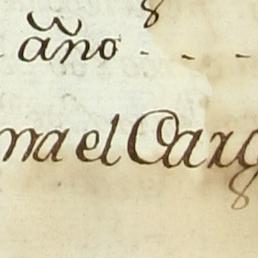 año - - -
ma el Carg